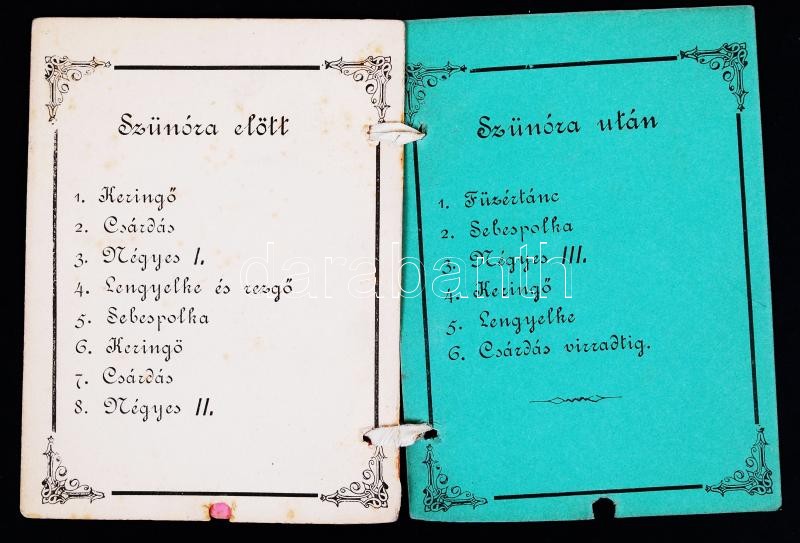 Szünóra előtt
1. Keringő
2. Csárdás
3. Négyes I.
4. Lengyelke és rezgő
5. Sebespolka
6. Keringő
7. Csárdás
8. Négyes II.
Szünóra után
1. Füzértánc
2. Sebespolka
3. Négyes III.
4. Keringő
5. Lengyelke
6. Csárdás virradtig.
darabanth